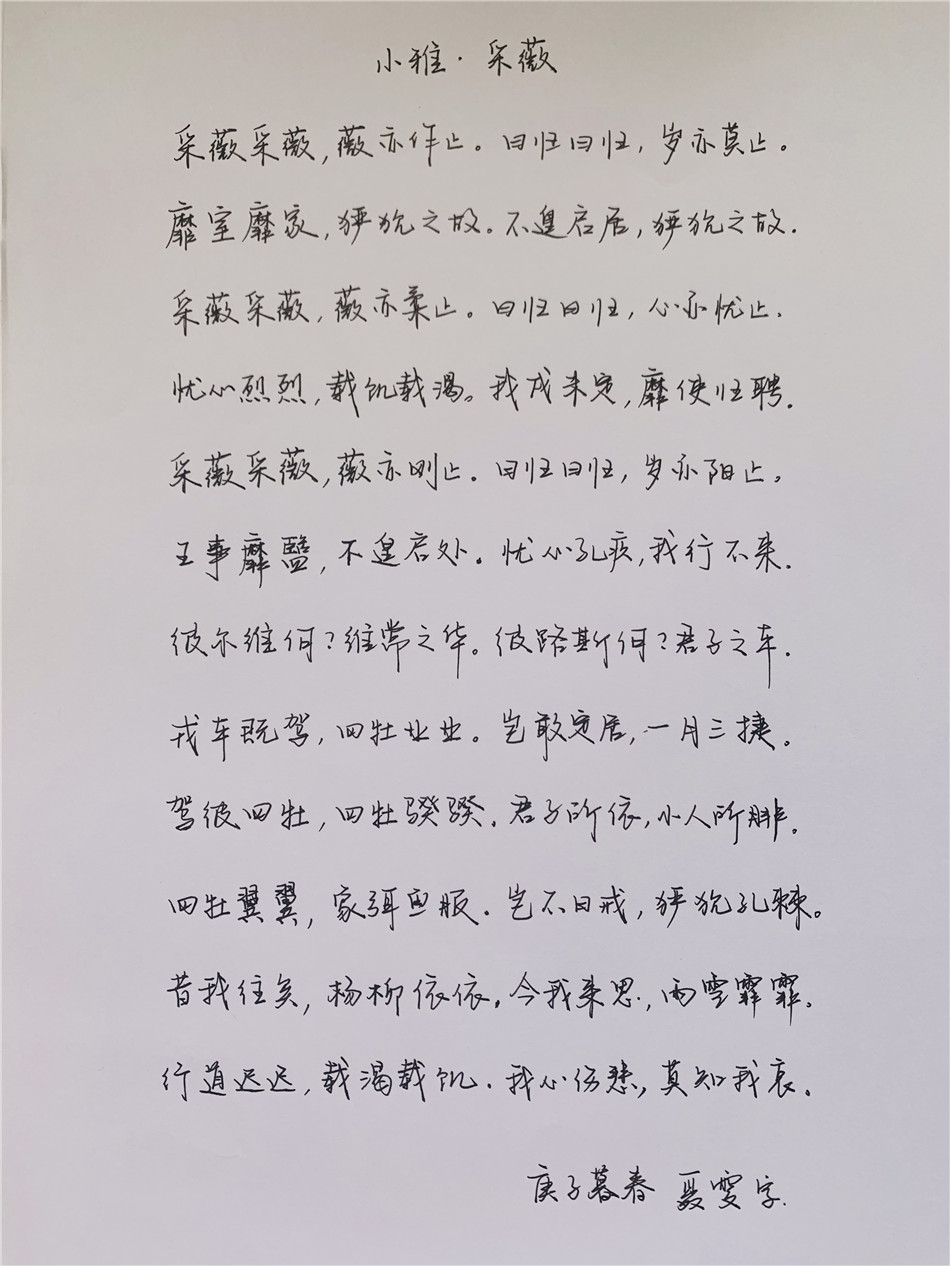 小雅·采薇
采薇采薇,薇亦作止。曰归曰归,岁亦莫止。
靡室靡家,猃狁之故。不遑启居,猃狁之故.
采薇采薇,薇亦柔止。曰归曰归,心亦忧止.
忧心烈烈,载饥载渴。我戍未定,靡使归聘.
采薇采薇,薇亦刚止.曰归曰归,岁亦阳止。
王事靡盬,不遑启处.忧心孔疚,我行不来.
彼尔维何?维常之华。彼路斯何?君子之车.
戎车既驾,四牡业业。岂敢定居,一月三捷。
驾彼四牡,四牡骙骙.君子所依,小人所腓。
四牡翼翼,象弭鱼服.岂不日戒,猃狁孔棘。
昔我往矣,杨柳依依.今我来思,雨雪霏霏.
行道迟迟,载渴载饥.我心伤悲,莫知我哀。
庚子暮春 聂雯字.